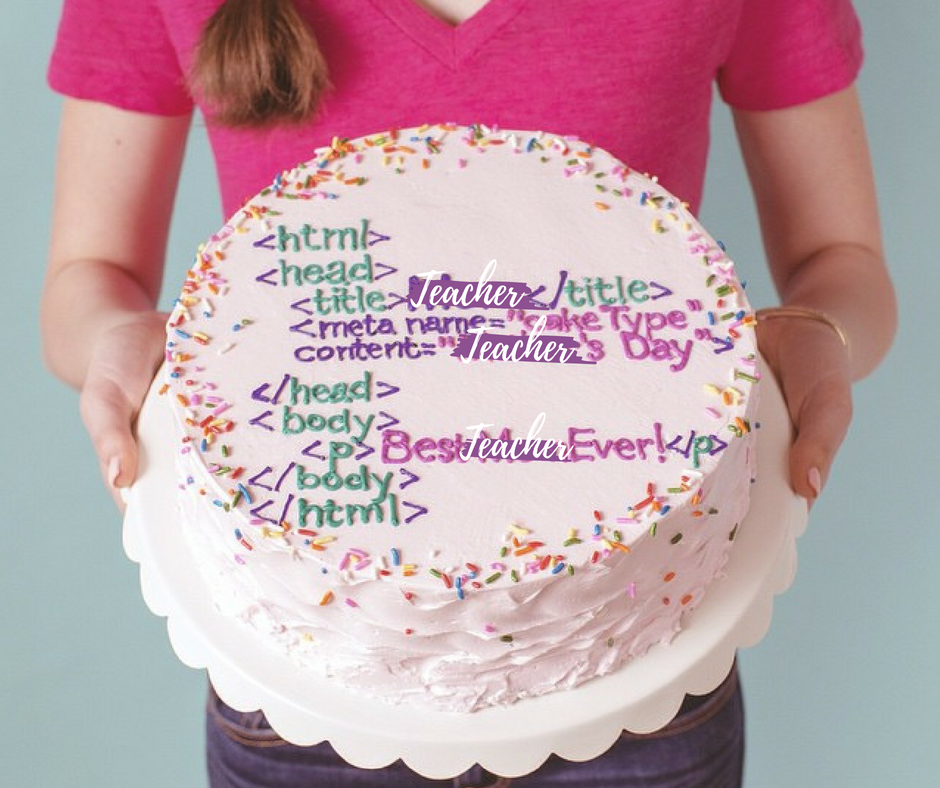 <html>
<head>
<title>Teacher</title>
<meta name="cakeType"
content="Teacher's Day">
</head>
<body>
<p>Best Teacher Ever!</p>
</body>
</html>